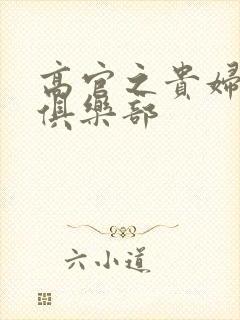 高官之貴婦
俱樂部
六小道